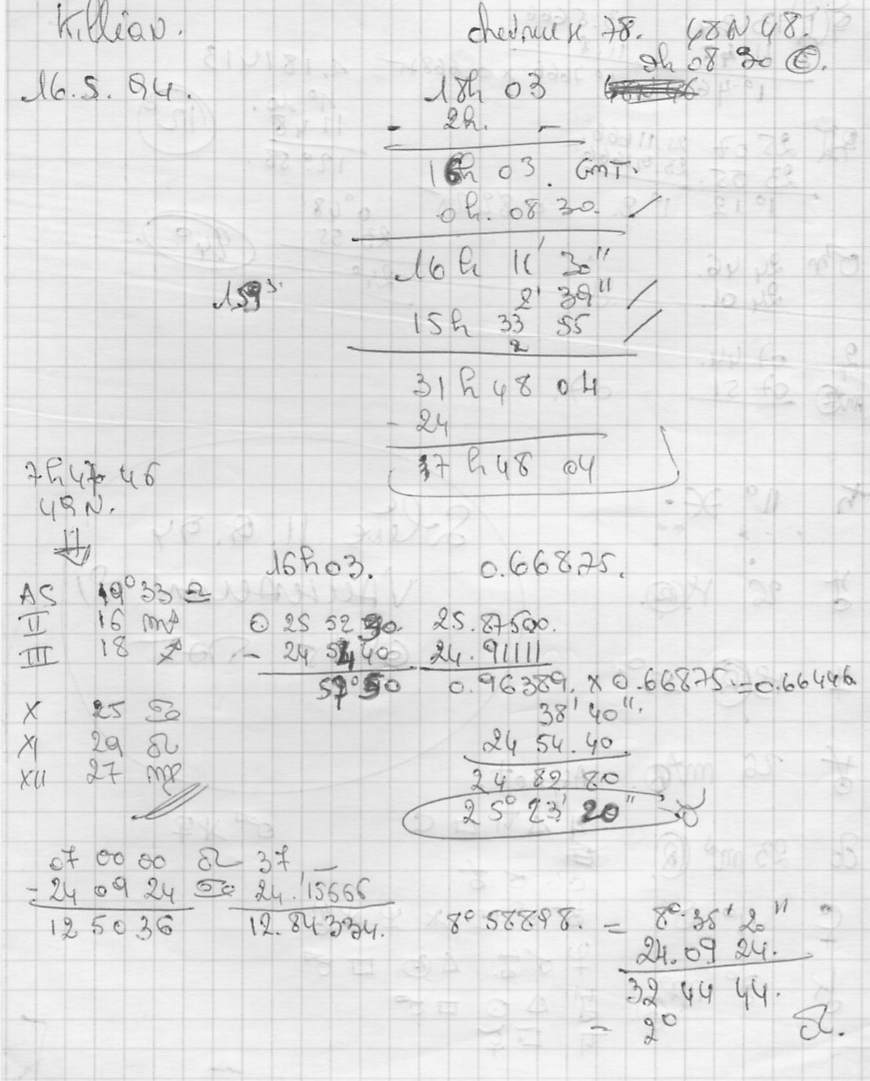 Killian.
16.5.94.
chevreuse 78. 48N48.
2h 08 30 E.
18h 03
- 2h. -
16h 03. GMT.
0h. 08 30.
16h 11' 30"
2' 39"
159
15h 33 55
2
31h 48 04
- 24
7h 48 04
7h 47 46
49N.
⇓
AS 19° 33 ♎
II 16 ♏
III 18 ♐
X 25 ♋
XI 29 ♌
XII 27 ♍
16h03. 0.66875.
☉ 25 52 30 25.87500.
- 24 54 40 24.91111
57° 50 0.96389. x 0.66875 = 0.66446
38' 40".
24 54.40.
24 82 80
25° 23' 20" ♉
07 00 00 ♌ 37 _
- 24 09 24 ♋ 24.15666
12 50 36 12.84334.
8° 58898. = 8° 35' 20"
24.09 24.
32 44 44.
= 2° ♌.